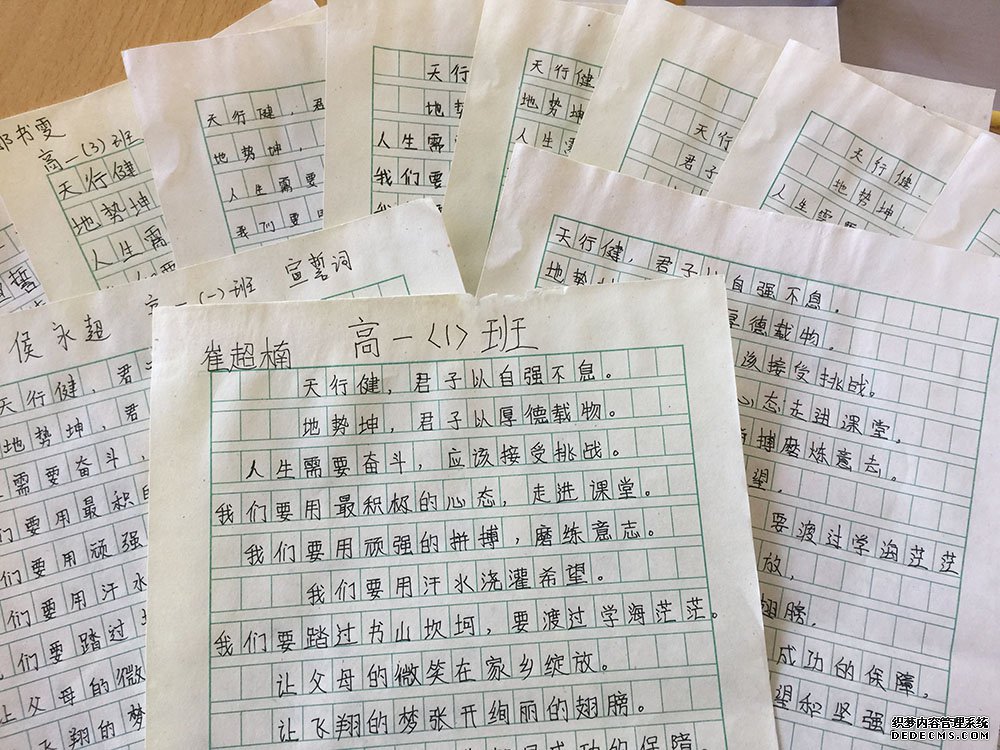 高一〈1〉班
崔超楠
天行健，君子以自强不息。
地势坤，君子以厚德载物。
人生需要奋斗，应该接受挑战。
我们要用最积极的心态，走进课堂。
我们要用顽强的拼搏，磨练意志。
我们要用汗水浇灌希望。
我们要踏过书山坎坷，要渡过学海茫茫。
让父母的微笑在家乡绽放。
让飞翔的梦张开绚丽的翅膀。
成功的保障。
侯永超 高一(一)班 宣誓词
天行健，君子
地势坤，君
需要奋斗，
们要用最积
们要用顽强
们要用汗水
们要踏过
让父母的微
飞翔的梦
书雯
高一(3)班
天行健
地势坤
人生需
天行健，君
地势坤，
人生需要
我们要用
天行
地势
人生需
我们要
天行健
地势坤
人生
天行
君子
天行健
地势坤
人生需
天行健，君子以自强不息。
地势
厚德载物。
该接受挑战。
心态走进课堂。
拼搏磨炼意志。
望。
要渡过学海茫茫
放，
翅膀。
成功的保障。
望和坚强
织梦内容管理系统
DEDECMS.COM